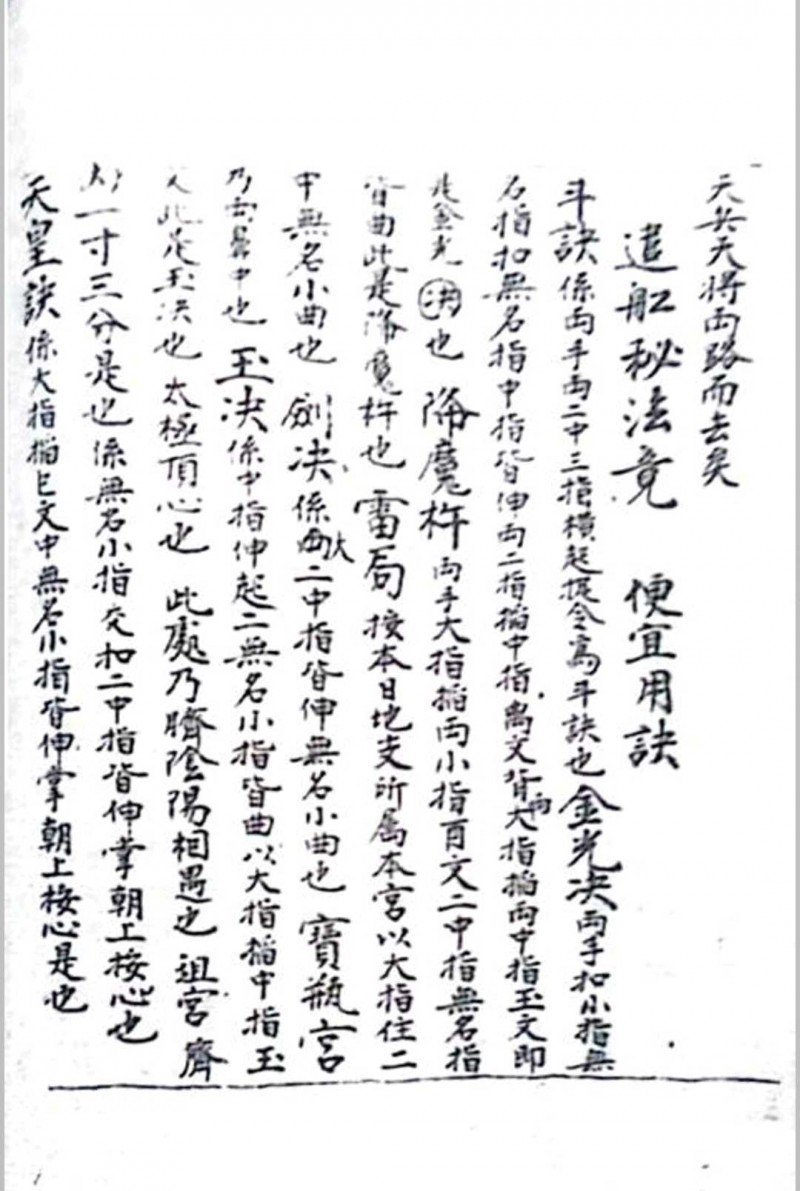 天兵天將両路而去矣
遣船秘法竟 便宜用訣
斗訣係両手両二中三指橫起提令為斗訣也 金光决両手扣小指無
名指扣無名指中指皆伸両二指掐中指离文皆両大指掐両中指玉文即
是金光决也 降魔杵両手大指掐両小指百文二中指無名指
皆曲此是降魔杵也 雷局按本日地支所属本宮以大指住二
中無名小曲也 劍决係大二中指皆伸無名小曲也 寶瓶宮
乃中也 玉决係中指伸起二無名小指皆曲以大指掐中指玉
此是玉决也 太極頂心也 此處乃臍陰陽相遇也 祖宮臍
一寸三分是也係無名小指交扣二中指皆伸掌朝上按心也
天皇訣係大指掐巳文中無名小指皆伸掌朝上按心是也